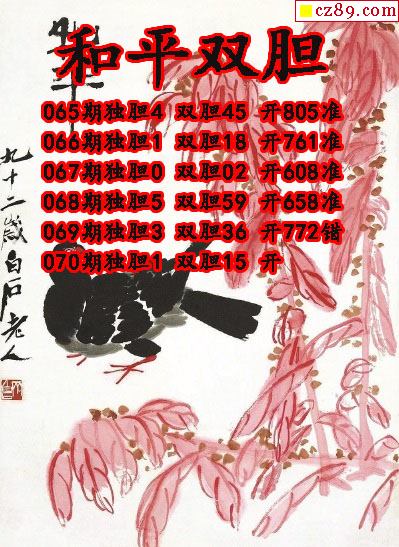 cz89.com
和平双胆
065期独胆4 双胆45 开805准
066期独胆1 双胆18 开761准
067期独胆0 双胆02 开608准
068期独胆5 双胆59 开658准
069期独胆3 双胆36 开772错
070期独胆1 双胆15 开
九十二岁白石老人